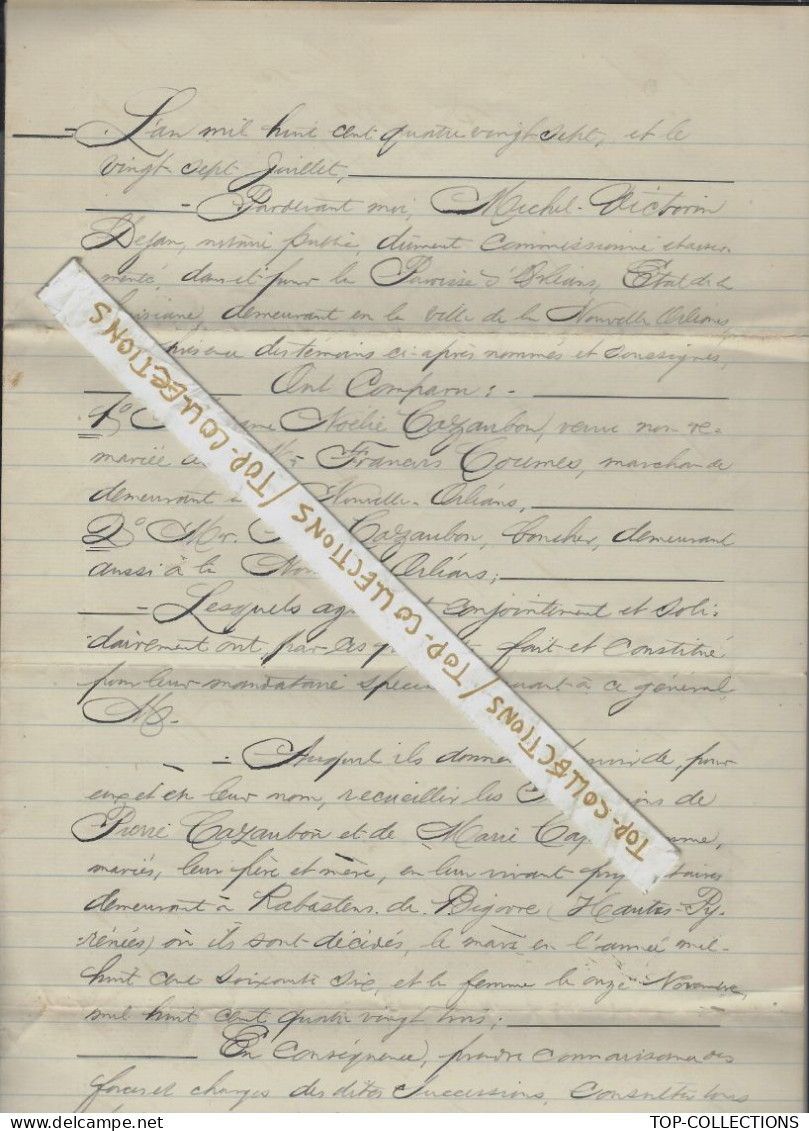 L'an mil huit cent quatre vingt sept, et le
vingt sept Juillet,
Pardevant moi, Michel-Victorin
Dejan, notaire public, dûment commissionné et asser-
menté, dans et pour la Paroisse d'Orléans, État de la
demeurant en la ville de la Nouvelle Orléans,
présence des témoins ci-après nommés et soussignés,
Ont Comparu :
1º Noélie Cazaubon, veuve non re-
mariée Francis Coumes, marchande
demeurant à Nouvelle-Orléans,
2º Mr. Cazaubon, boucher, demeurant
aussi à la Orléans,
Lesquels conjointement et soli-
dairement ont, par ces fait et constitué
pour leur mandataire spécial quant à ce général,
M.
Auquel ils donnent de, pour
eux et en leur nom, recueillir les de
Pierre Cazaubon et de Marie
mariés, leur père et mère, en leur vivant
demeurant à Rabastens-de-Bigorre (Hautes-Py-
rénées) où ils sont décédés, le mari en l'année mil-
huit cent soixante six, et la femme le onze Novembre,
mil huit cent quatre vingt trois;
En conséquence, prendre connaissance des
forces et charges des dites successions, Consulter tous
TOP-COLLECTIONS / TOP-COLLECTIONS / TOP-COLLECTIONS / TOP-COLLECTIONS / TOP-COLLECTIONS
TOP-COLLECTIONS